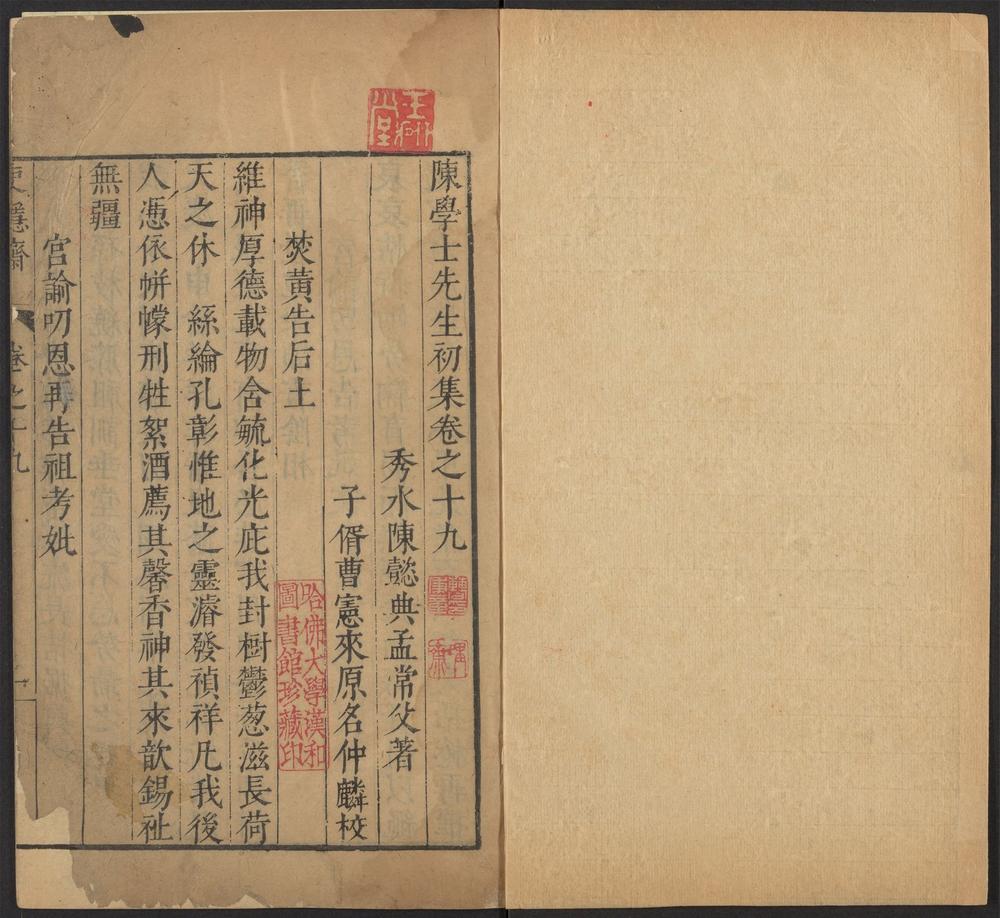 陳學士先生初集卷之十九
秀水陳懿典孟常父著
子壻曹憲來原名仲麟校
焚黃告后土
維神厚德載物含毓化光庇我封樹鬱蔥滋長荷
天之休 絲綸孔彰惟地之靈濬發禎祥凡我後
人憑依帡幪刑牲絜酒薦其馨香神其來歆錫祉
無疆
宮諭叨恩再告祖考妣
吏隱齋 卷之十九
哈佛大學漢和
圖書館珍藏印